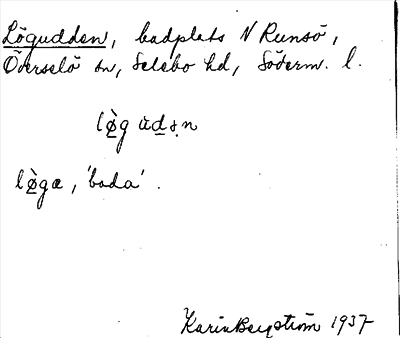 Lögudden, badplats N Runsö,
Överselö sn, Selebo hd, Söderm. l.
lø̀g ùdən
lø̀gæ, 'bada'.
Karin Bergström 1937